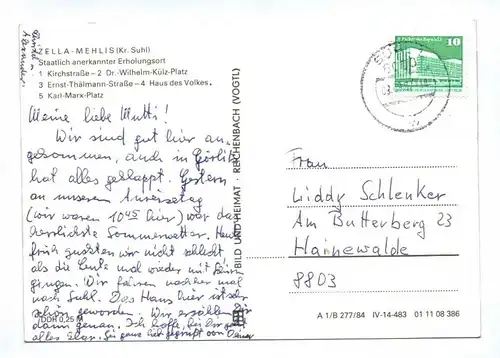 ZELLA-MEHLIS (Kr. Suhl)
Staatlich anerkannter Erholungsort
1 Kirchstraße – 2 Dr.-Wilhelm-Külz-Platz
3 Ernst-Thälmann-Straße – 4 Haus des Volkes
5 Karl-Marx-Platz
Meine liebe Mutti!
Wir sind gut hier an-
gekommen, auch in Görlitz
hat alles geklappt. Gestern
an unserem Anreisetag
(wir waren 10⁴⁵ hier) war das
herrlichste Sommerwetter. Heute
früh guckten wir nicht schlecht
als die Leute mal wieder mit
gingen. Wir fahren nachher mal
nach Suhl. Das Haus hier ist sehr
schön geworden. Wir erzählen
dann genau. Ich hoffe, bei
alles klar. Sei ganz lieb gegrüßt von Deiner
/DDR 0,25 M
BILD UND HEIMAT · REICHENBACH (VOGTL)
10
Frau
Liddy Schlenker
Am Butterberg 23
Hainewalde
8803
A 1/B 277/84 IV-14-483 01 11 08 386